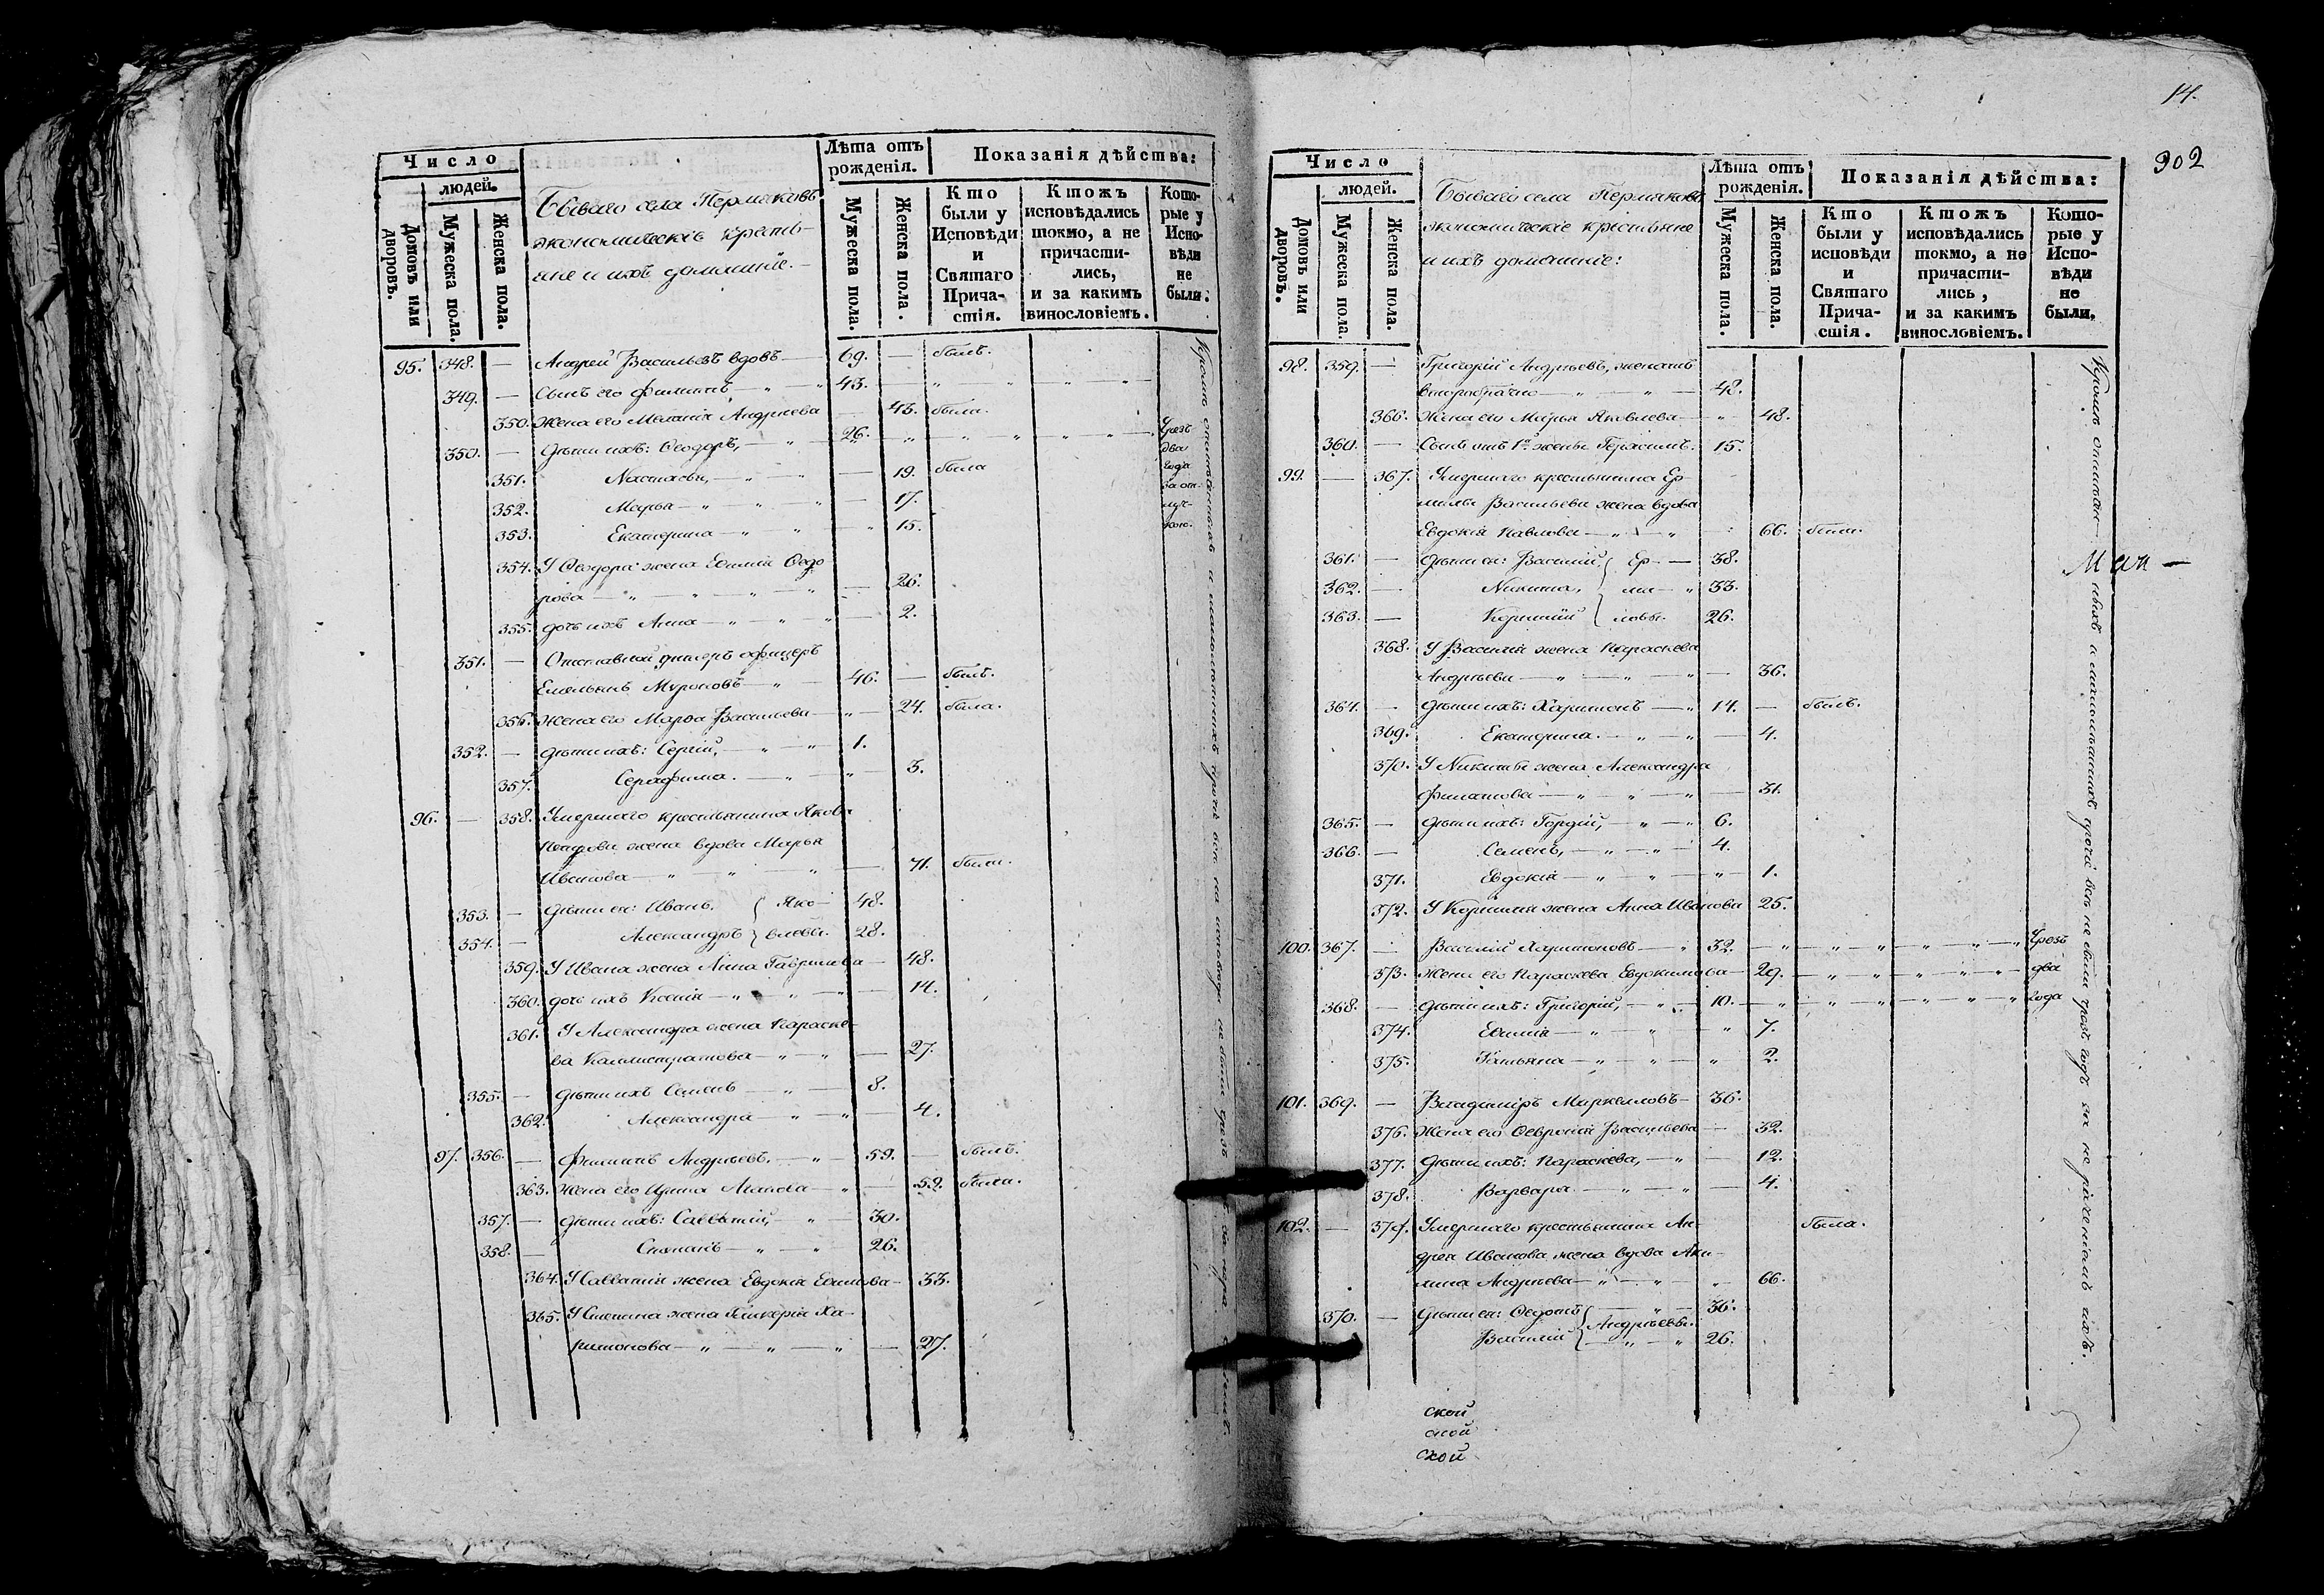 Число
людей.
Домовъ или дворовъ.
Мужеска пола.
Женска пола.
Бываго села Пермяковъ
экономическіе кресть-
яне и ихъ домашніе.
Лѣта отъ рожденія.
Мужеска пола.
Женска пола.
Показанія дѣйства:
Кто были у Исповѣди и Святаго Прича-стія.
Ктожъ исповѣдались токмо, а не причасти-лись, и за какимъ винословіемъ.
Кото-рые у Испо-вѣди не были.
95. 348. — Андрей Васильевъ вдовъ — 69. — былъ.
349. — Сынъ его Филиппъ — 43. —
350. Жена его Меланія Андреева — 43. была.
350. — Дѣти ихъ: Ѳеодоръ, — 26. — Чрезъ
два
года
за от-
луч-
кою.
351. Настасья, — 19. была
352. Марья — 17.
353. Екатерина — 15.
354. У Ѳеодора жена Евфимія Ѳедо
рова — 26.
355. дочь ихъ Анна — 2.
351. — Отставной унтеръ офицеръ
Емельянъ Муроновъ — 46. — былъ.
356. Жена его Марѳа Васильева — 24. была.
352. — Дѣти ихъ: Сергій, — 1.
357. Серафима. — 3.
96. — 358. Умершаго крестьянина Якова
жена вдова Марья
Иванова — 71. была.
353. — Дѣти ея: Иванъ. Яко- 48.
354. — Александръ влевы. 28.
359. У Ивана жена Анна Гаврилова — 48.
360. дочь ихъ Ксенія — 14.
361. У Александра жена Параске-
ва Каллистратова — 27.
355. — Дѣти ихъ Семенъ — 8.
362. Александра — 4.
97. 356. — Филиппъ Андреевъ. — 59. — былъ.
363. Жена его Ирина — 59. была.
357. — Дѣти ихъ: Савватій, — 30.
358. — Степанъ — 26.
364. У Савватія жена Евдокія Евфимова — 33.
365. У Степана жена Гликерія Ха-
ритонова — 27.
14.
302
Число
людей.
Домовъ или дворовъ.
Мужеска пола.
Женска пола.
Бываго села Пермяковъ
экономическіе крестьяне
и ихъ домашніе:
Лѣта отъ рожденія.
Мужеска пола.
Женска пола.
Показанія дѣйства:
Кто были у исповѣди и Святаго Прича-стія.
Ктожъ исповѣдались токмо, а не причасти-лись, и за какимъ винословіемъ.
Кото-рые у Испо-вѣди не были.
98. 359. — Григорій Андреевъ, женатъ
второбрачно — 48.
366. Жена его Марья Яковлева — 48.
360. — Сынъ отъ 1й жены Герасимъ. 15.
99. — 367. Умершаго крестьянина Ер
милы Васильева жена вдова
Евдокія Павлова — 66. была.
361. — Дѣти ея: Василій, Ер- 38.
362. — Никита, ми- 33.
363. — Корнилій ловы. 26.
368. У Василія жена Параскева
Андреева — 36.
364. — Дѣти ихъ: Харитонъ — 14. — былъ.
369. Екатерина. — 4.
370. У Никиты жена Александра
Филатова — 31.
365. — Дѣти ихъ: Гордій, — 6.
366. — Семенъ, — 4.
371. Евдокія — 1.
372. У Корнилія жена Анна Иванова 25.
100. 367. — Василій Харитоновъ — 32. — Чрезъ
373. Жена его Параскева Евдокимова — 29. — два
368. — Дѣти ихъ: Григорій, — 10. — года
374. Евфимія — 7.
375. Татьяна — 2.
101. 369. — Владиміръ Маркелловъ — 36.
376. Жена его Ѳевронія Васильева — 32.
377. Дѣти ихъ: Параскева, — 12.
378. Варвара — 4.
102. — 379. Умершаго крестьянина Ан- была.
дрея Иванова жена вдова Аки-
лина Андреева — 66.
370. — Дѣти ея: Ѳедотъ Андреевы. 36.
Василій 26.
ской
ской
ской